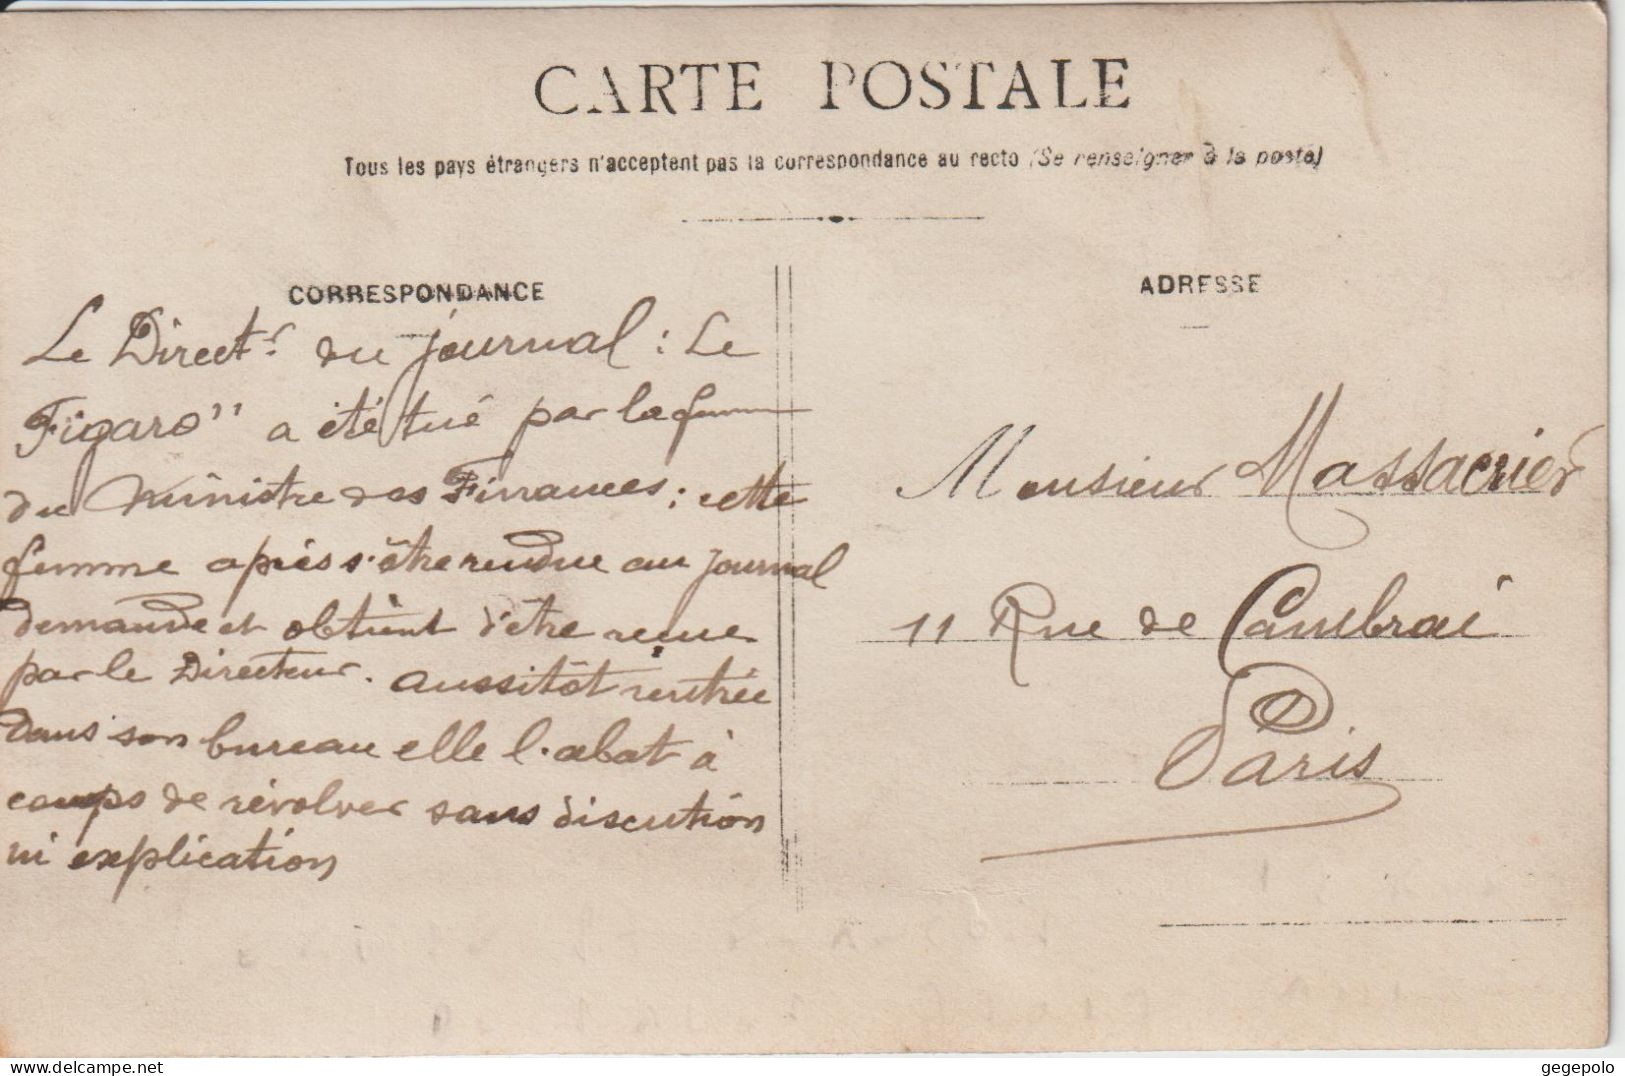 CARTE POSTALE
Tous les pays étrangers n'acceptent pas la correspondance au recto (Se renseigner à la poste)
CORRESPONDANCE
Le Direct.r du journal : Le
Figaro" a été tué par la femme
du Ministre des Finances ; cette
femme après s'être rendue au journal
demande et obtient d'être reçue
par le Directeur. aussitôt rentrée
dans son bureau elle l'abat à
coups de révolver sans discution
ni explication
ADRESSE
Monsieur Massacrier
11 Rue de Cambrai
Paris
gegepolo